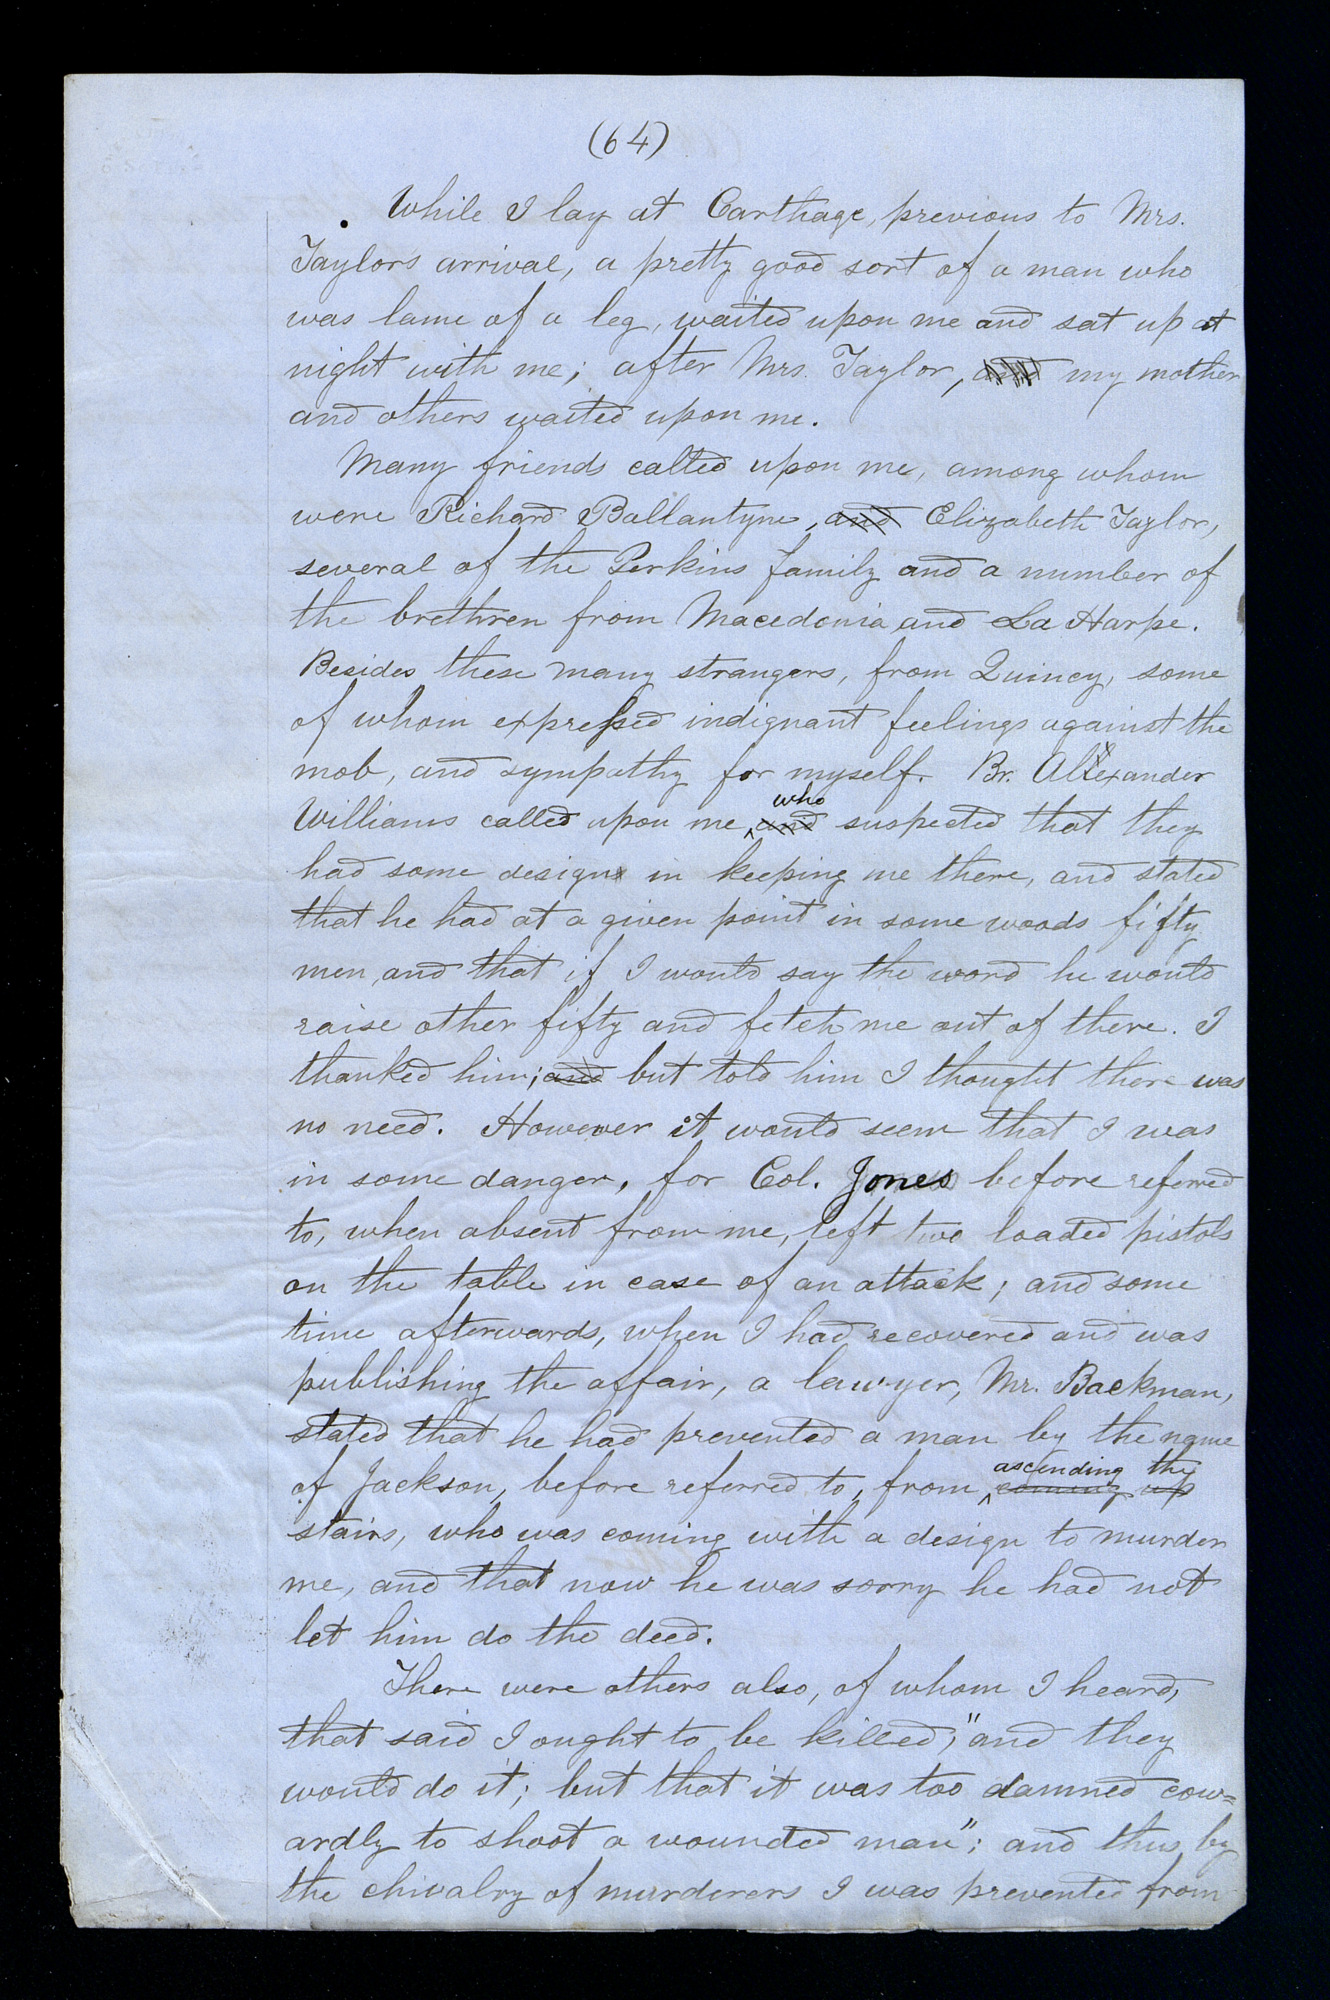 (64)
While I lay at Carthage, previous to Mrs.
Taylors arrival, a pretty good sort of a man who
was lame of a leg, waited upon me and sat up at
night with me; after Mrs. Taylor, and my mother
and others waited upon me.
Many friends called upon me, among whom
were Richard Ballantyne, and Elizabeth Taylor,
several of the Perkins family and a number of
the brethren from Macedonia and La Harpe.
Besides these many strangers, from Quincy, some
of whom expressed indignant feelings against the
mob, and sympathy for myself. Br. Alexander
who
Williams called upon me, and suspected that they
had some design in keeping me there, and stated
that he had at a given point in some woods fifty
men, and that if I would say the word he would
raise other fifty and fetch me out of there. I
thanked him; and but told him I thought there was
no need. However it would seem that I was
in some danger, for Col. Jones before referred
to, when absent from me, left two loaded pistols
on the table in case of an attack; and some
time afterwards, when I had recovered and was
publishing the affair, a lawyer, Mr. Backman,
stated that he had prevented a man by the name
ascending the
of Jackson, before referred to, from coming up
stairs, who was coming with a design to murder
me, and that now he was sorry he had not
let him do the deed.
There were others also, of whom I heard,
that said I ought to be killed, "and they
would do it; but that it was too damned cow=
ardly to shoot a wounded man"; and thus by
the chivalry of murderers I was prevented from